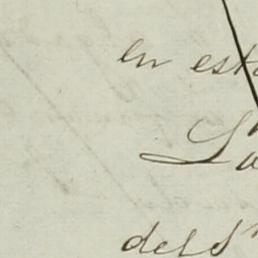 en est
La
del S